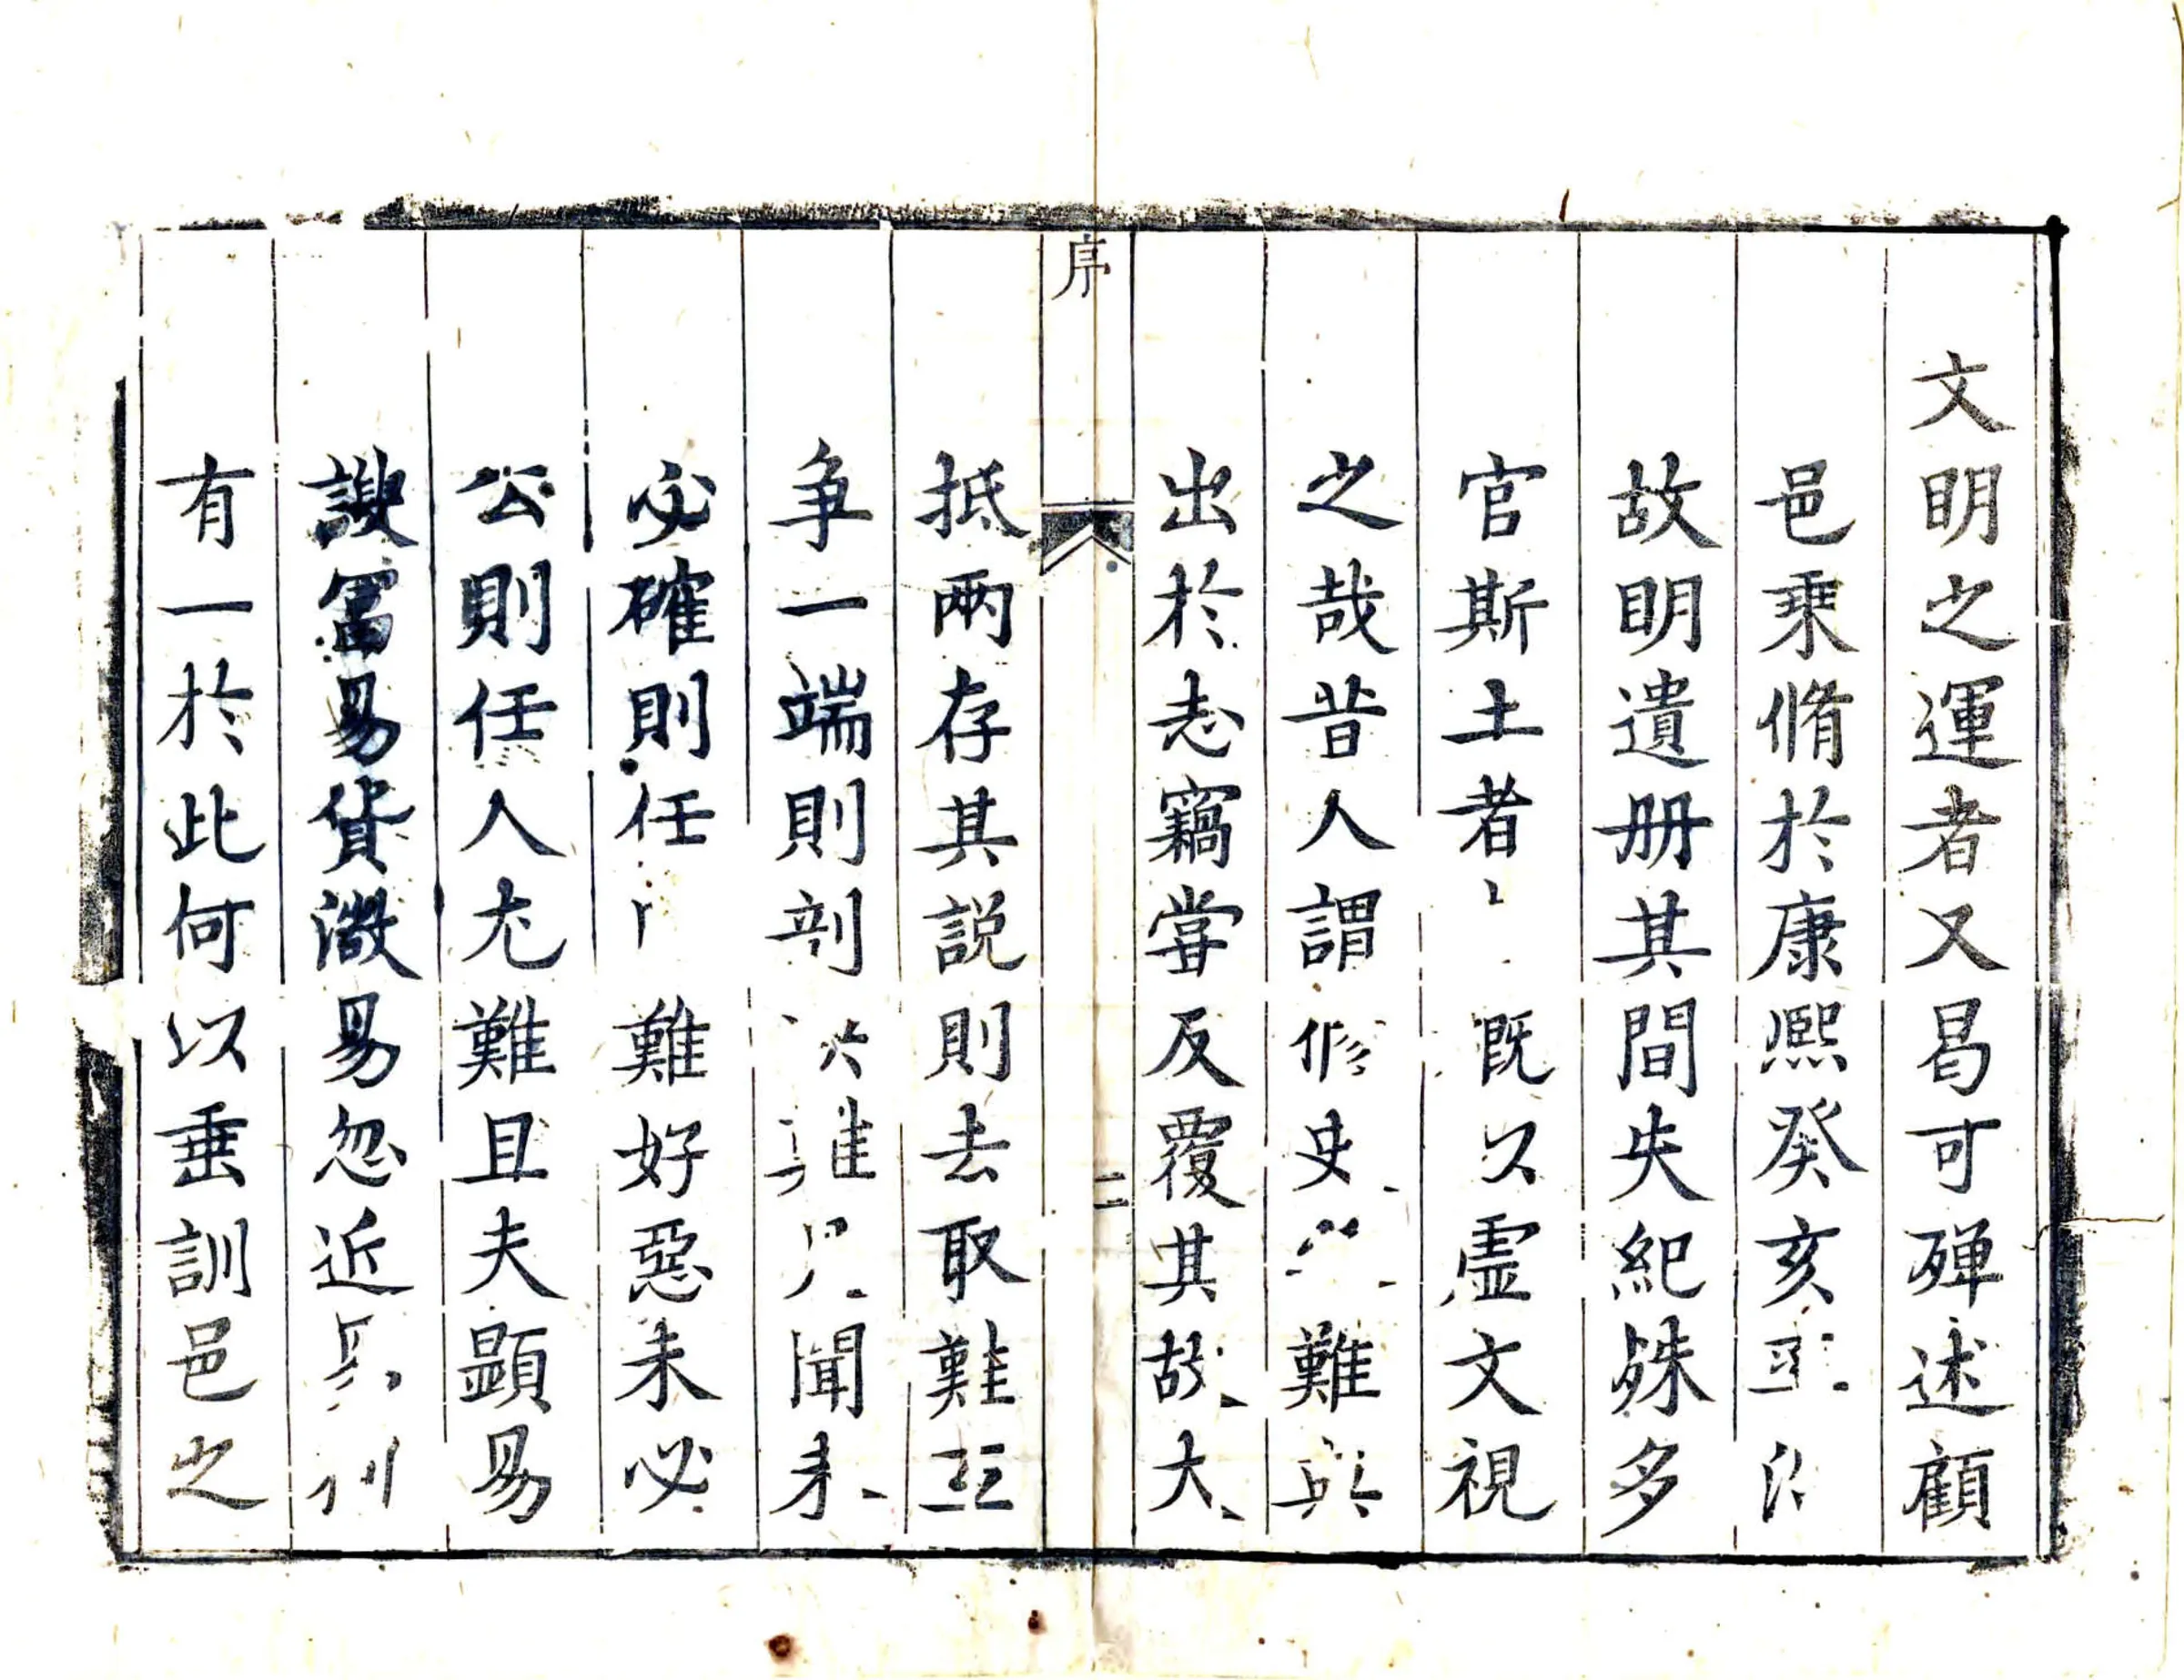 文明之運者又曷可殫述顧
邑乘脩於康熙癸亥
故明遺册其間失紀殊多
官斯土者 既以虛文視
之哉昔人謂修史 難
出於志竊嘗反覆其故大
序
二
抵兩存其説則去取難
争一端則剖 難 聞未
必確則任 難好惡未必
公則任人尤難且夫顯易
諛富易貨微易忽近
有一於此何以垂訓邑之